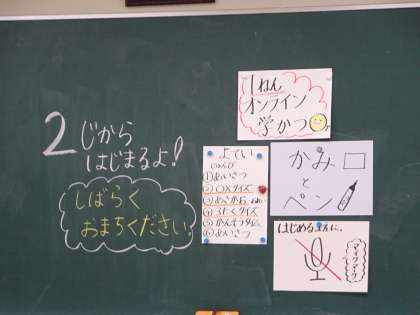 2じから
はじまるよ!
しばらく
おまちください。
1ねん
オンライン
学かつ
よてい
じゅんび
①あいさつ
②○×クイズ
③あさがお
④3たくクイズ
⑤かんそうタイム
⑥あいさつ
かみ
と
ペン
はじめるまえに、